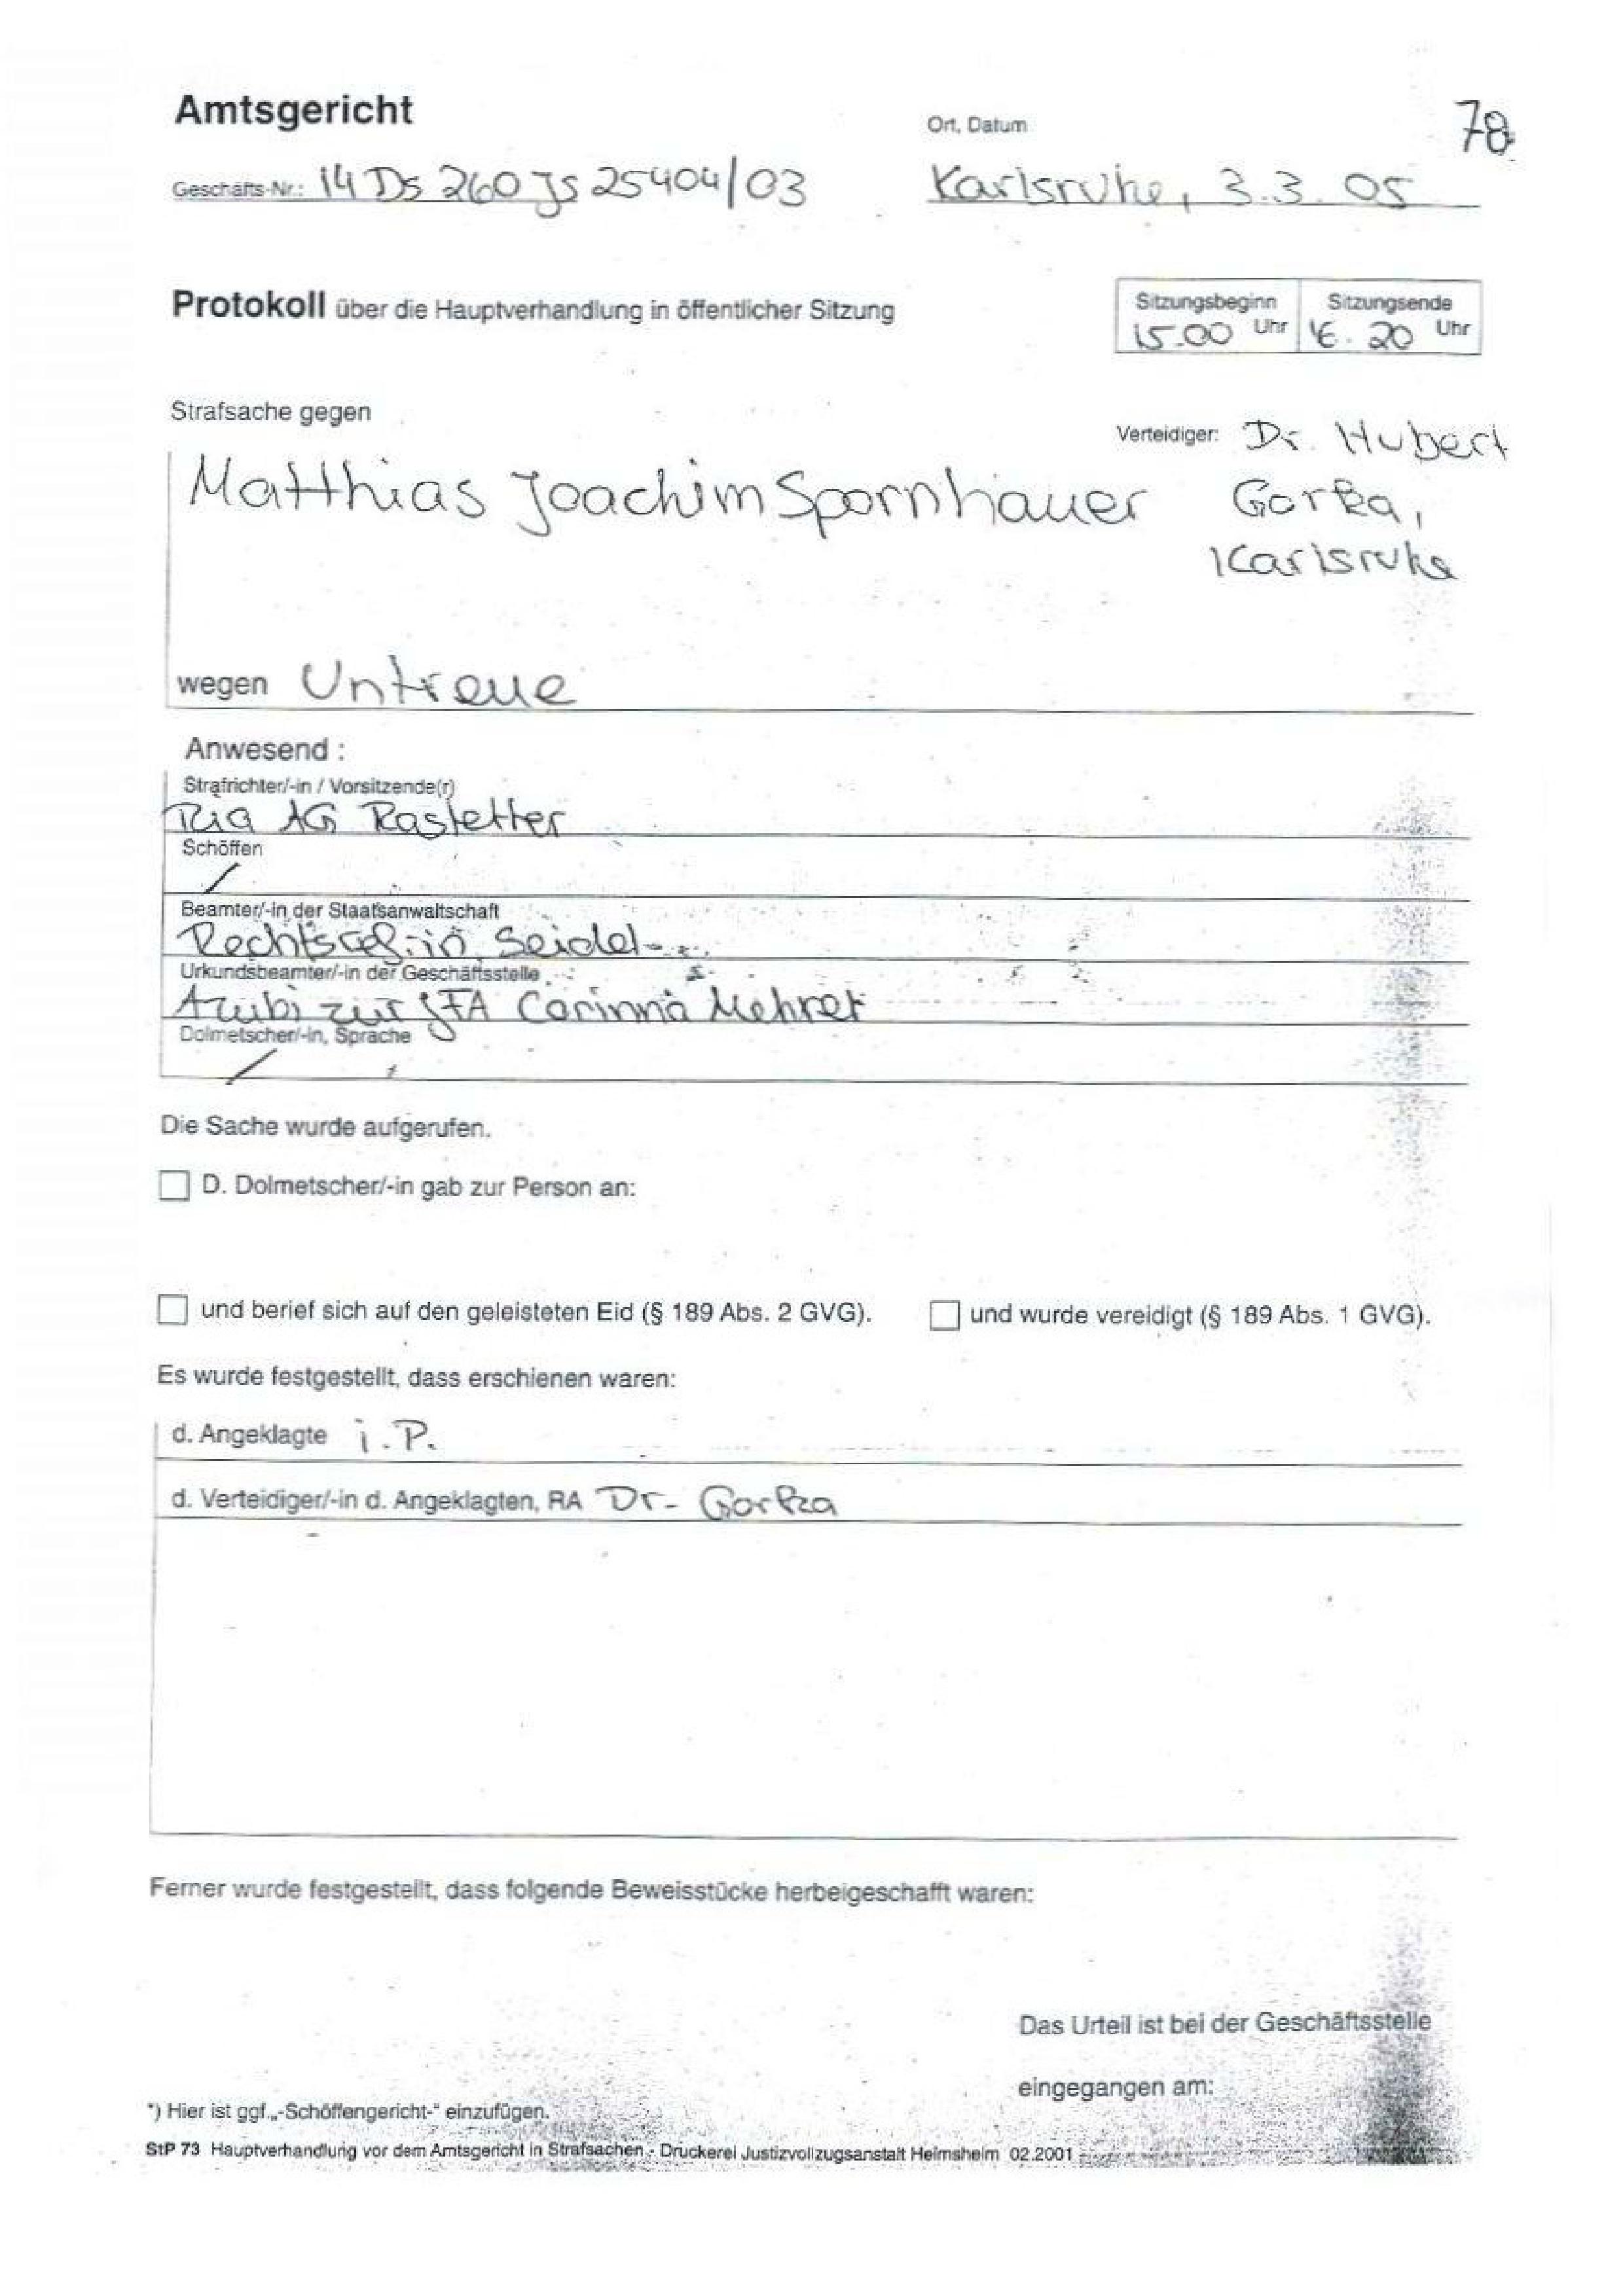 Amtsgericht
Ort, Datum
78
Geschäfts-Nr.: 14 Ds 260 Js 25404/03
Karlsruhe, 3.3.05
Protokoll über die Hauptverhandlung in öffentlicher Sitzung
Sitzungsbeginn Sitzungsende
15.00 Uhr 16.20 Uhr
Strafsache gegen
Verteidiger: Dr. Hubert
Matthias Joachim Spornhauer Gorka,
Karlsruhe
wegen Untreue
Anwesend :
Strafrichter/-in / Vorsitzende(r)
AG Rastetter
Schöffen
/
Beamter/-in der Staatsanwaltschaft
Seidel
Urkundsbeamter/-in der Geschäftsstelle
Azubi zur JFA Corinna
Dolmetscher/-in, Sprache
/
Die Sache wurde aufgerufen.
D. Dolmetscher/-in gab zur Person an:
und berief sich auf den geleisteten Eid (§ 189 Abs. 2 GVG). und wurde vereidigt (§ 189 Abs. 1 GVG).
Es wurde festgestellt, dass erschienen waren:
d. Angeklagte i.P.
d. Verteidiger/-in d. Angeklagten, RA Dr. Gorka
Ferner wurde festgestellt, dass folgende Beweisstücke herbeigeschafft waren:
Das Urteil ist bei der Geschäftsstelle
eingegangen am:
*) Hier ist ggf. „-Schöffengericht-“ einzufügen.
StP 73 Hauptverhandlung vor dem Amtsgericht in Strafsachen - Druckerei Justizvollzugsanstalt Heimsheim 02.2001